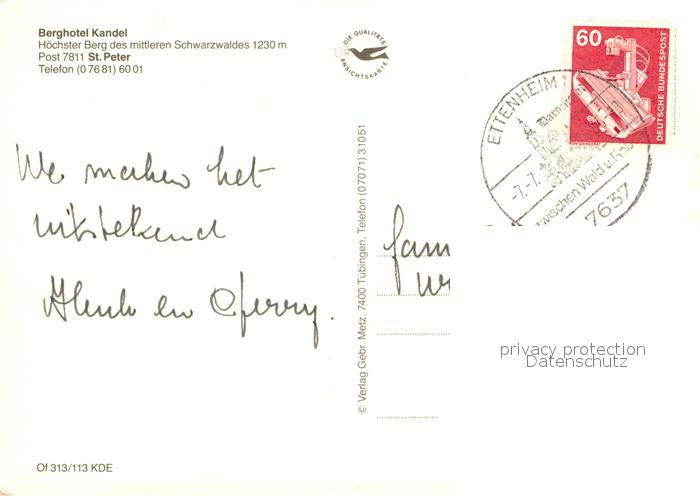 Berghotel Kandel
Höchster Berg des mittleren Schwarzwaldes 1230 m
Post 7811 St. Peter
Telefon (0 76 81) 60 01
DIE QUALITÄTS
ANSICHTSKARTE
60
DEUTSCHE BUNDESPOST
ETTENHEIM
-7.-7.
zwischen Wald u.
7637
We maken het
uitstekend
en Gerry.
© Verlag Gebr. Metz, 7400 Tübingen, Telefon (07071) 31051
fam
privacy protection
Datenschutz
Of 313/113 KDE